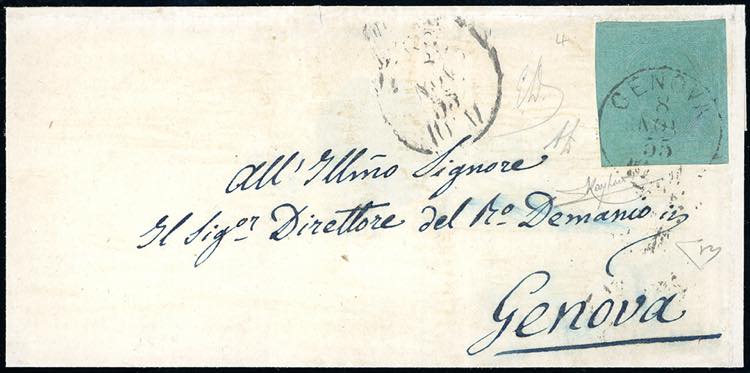 4
GENOVA
8
55
All' Illmo Signore
Il Sigor Direttore del Ro Demanio in
Genova